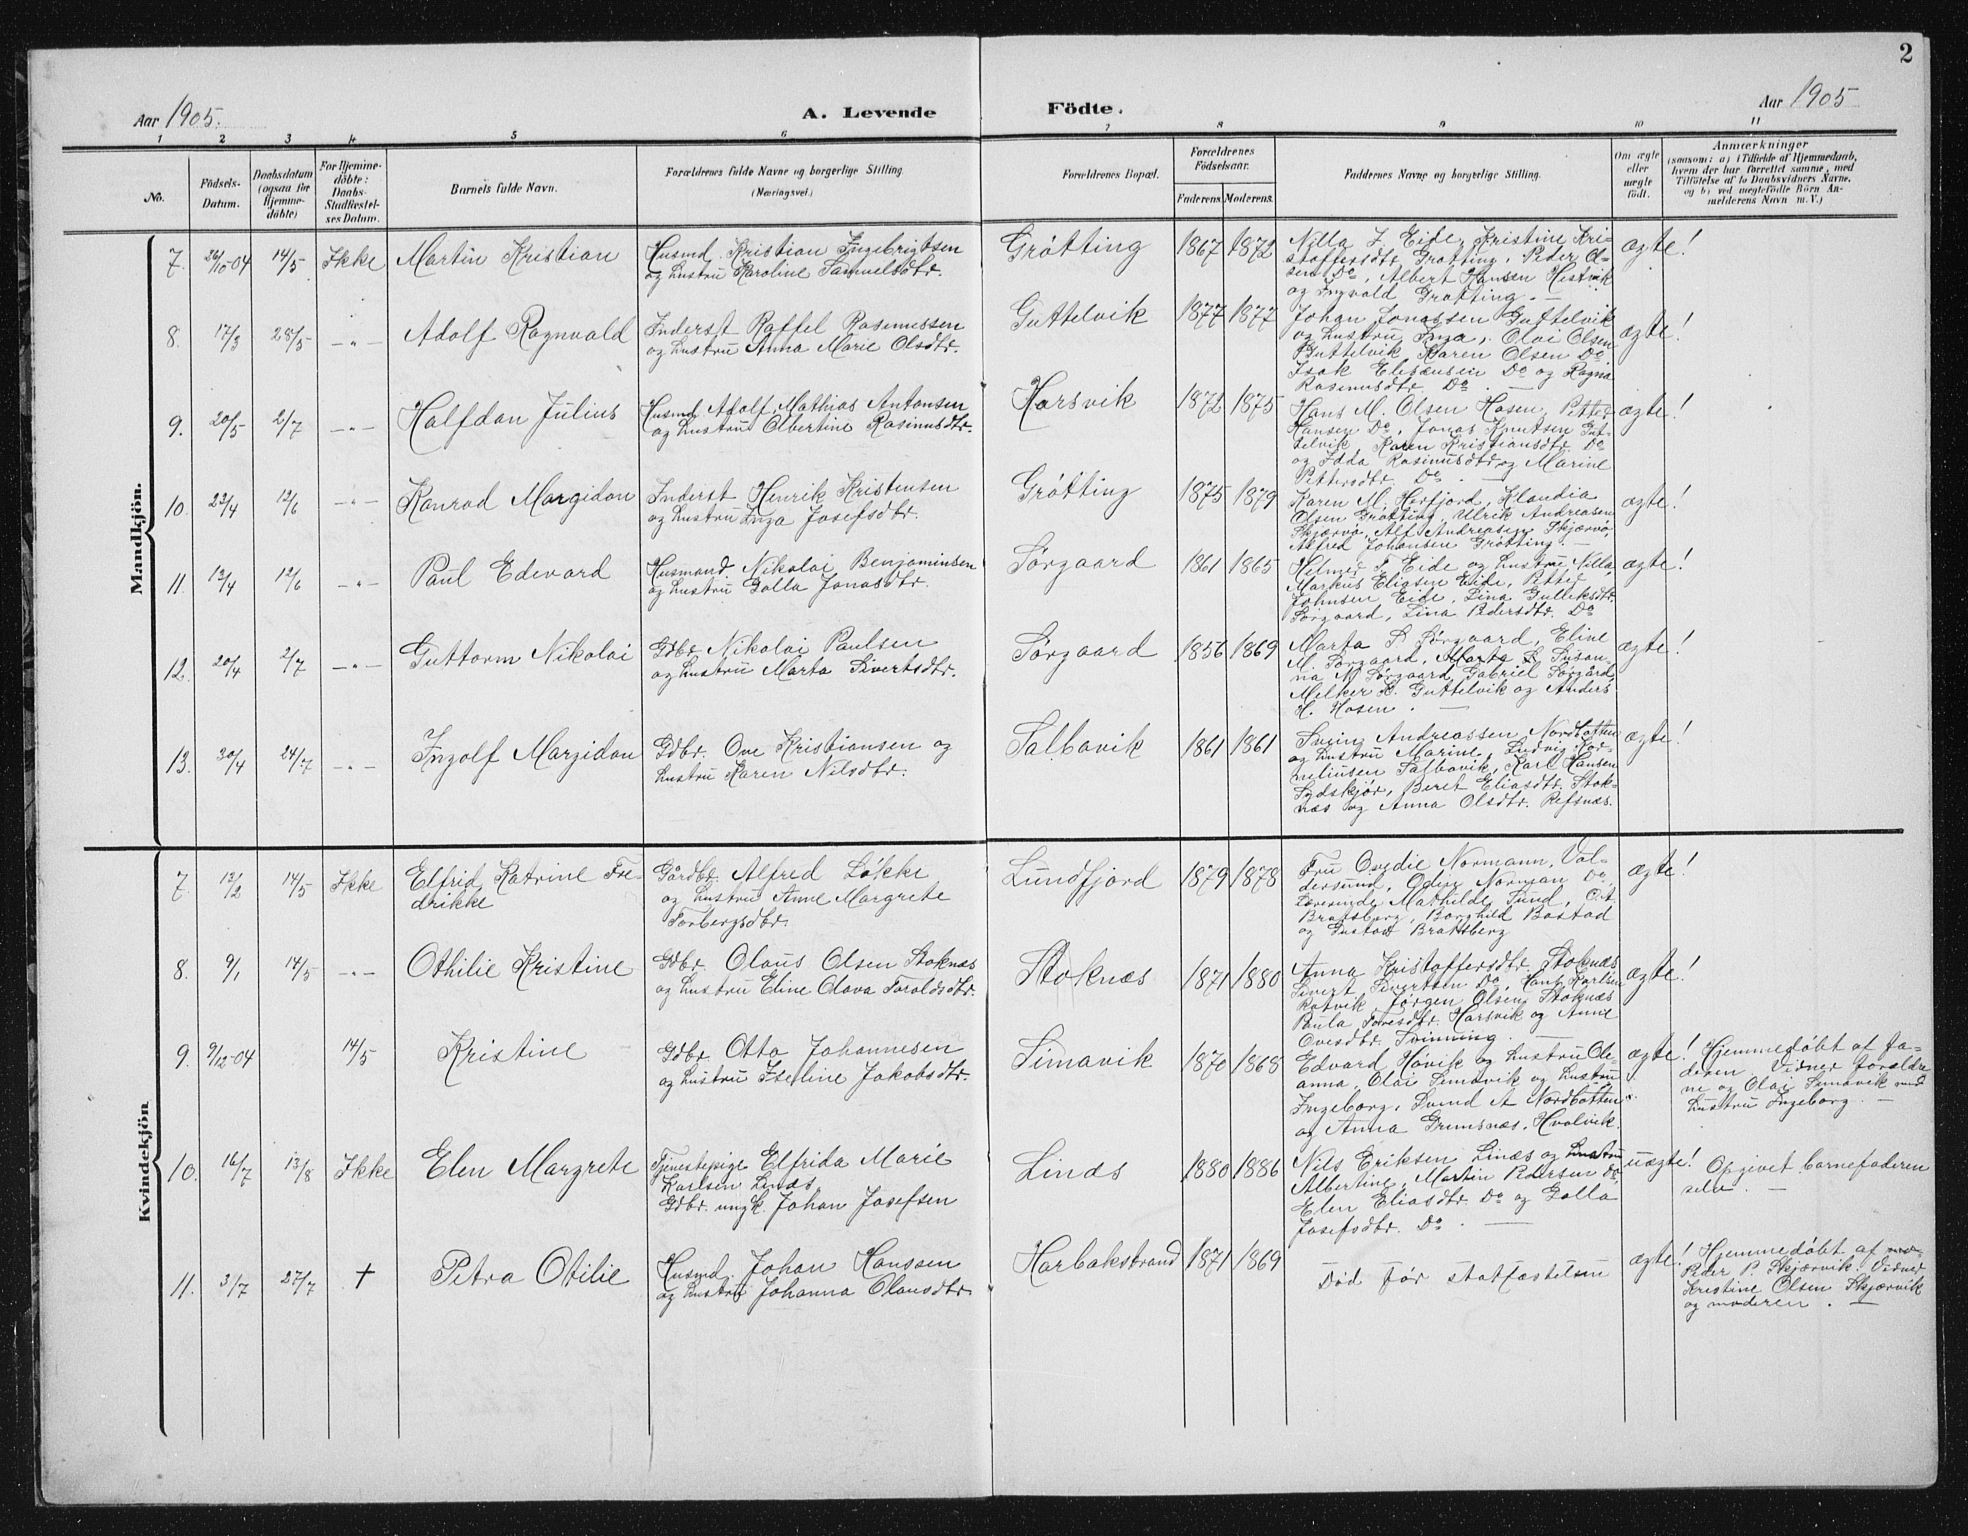 2
Aar 1905. A. Levende Födte. Aar 1905
1 2 3 4 5 6 7 8 9 10 11
No. Födsels-Datum. Daabsdatum (ogsaa for Hjemmedöbte) For Hjemmedöbte: Daabs-Stadfæstelses Datum. Barnets fulde Navn. Forældrenes fulde Navne og borgerlige Stilling. (Næringsvei.) Forældrenes Bopæl. Forældrenes Födselsaar. Faderens. Moderens. Faddernes Navne og borgerlige Stilling. Om ægte eller uægte födt. Anmærkninger (saasom: a) i Tilfælde af Hjemmedaab, hvem der har forrettet samme, med Tilföielse af to Daabsvidners Navne, og b) ved uegtefödte Börn Anmelderens Navn m. V.)
Mandkjön.
7. 26/10-04 14/5 Ikke Martin Kristian
Husmd. Kristian Ingebrigtsen
og hustru Karoline Samuelsdtr.
Grøtting 1867 1872
Nilla J. Eide, Kristine Kri-
stoffersdtr. Grøtting, Peder Ol-
sen Do, Albert Hansen Hestvik
og Ingvald Grøtting. —
ægte!
8. 17/3 28/5 -"- Adolf Ragnvald
Inderst Raffel Rasmussen
og hustru Anna Marie Olsdtr.
Guttelvik 1877 1877
Johan Jonassen Guttelvik
og hustru Inga, Olai Olsen
Guttelvik, Karen Olsen Do,
Isak Eliseussen Do og Ragna
Rasmusdtr Do. —
ægte!
9. 20/5 2/7 -"- Halfdan Julius
Husmd Adolf Mathias Antonsen
og hustru Olbertine Rasmusdtr.
Harsvik 1872 1875
Hans M. Olsen Hosen, Petter
Hansen Do, Jonas Knutsen Gut-
telvik, Karen Kristiansdtr. Do
og Idda Rasmusdtr og Marine
Pettersdtr. Do. —
ægte!
10. 23/4 12/6 -"- Konrad Margidon
Inderst Henrik Kristensen
og hustru Inga Josefsdtr.
Grøtting 1875 1879
Karen M. Herfjord, Klandia
Olsen Grøtting, Ulrik Andreasen
Skjærvø, Alf Andreasen Skjærvø,
Alfred Johansen Grøtting. —
ægte!
11. 13/4 12/6 -"- Paul Edevard
Husmand Nikolai Benjaminsen
og hustru Golla Jonasdtr.
Sørgaard 1861 1865
Helmer F. Eide og hustru Nilla,
Markus Eliasen Eide, Petter
Johnsen Eide, Lina Gulleksdtr.
Sørgaard, Lina Pedersdtr. Do
ægte!
12. 20/4 2/7 -"- Guttorm Nikolai
Gdbr. Nikolai Paulsen
og hustru Marta Sivertsdtr.
Sørgaard 1856 1869
Marta S. Sørgaard, Eline
M. Sørgaard, Marta S. Susan-
na N. Sørgaard, Gabriel Sørgård,
Melker L. Guttelvik og Anders
H. Hosen. —
ægte!
13. 30/4 24/7 -"- Ingolf Margidon
Gdbr. Ove Kristiansen og
hustru Karen Nilsdtr.
Salbovik 1861 1861
Svein Andreassen Nordbotten
og hustru Marine, Ludvig Kor-
neliusen Salbovik, Karl Hansen
Sydskjør, Beret Eliasdtr. Stok-
næs og Anna Olsdtr. Refsnæs.
ægte!
Kvindekjön
7. 12/2 14/5 Ikke Elfrid Katrine Fre-
drikke
Gårdbr. Alfred Løkke
og hustru Anne Margrete
Torbergsdtr.
Lundfjord 1879 1878
Fru Ovedie Normann, Val-
dersund, Odin Norman Do
Lærerinde Mathilde Sund, O.t.
Bratsberg, Borghild Bostad
og Gustav Bratsberg
ægte!
8. 9/1 14/5 -"- Othilie Kristine
Gdbr. Olaus Olsen Stoknæs
og hustru Eline Olava Toraldsdtr.
Stoknæs 1871 1880
Anna Kristoffersdtr. Stoknæs
Sivert Sivertsen Do, Hans Karlsen
Ratvik, Jørgen Olsen Stoknæs
Paula Toresdtr. Harsvik og Anne
Ovesdtr. Svinning. —
ægte!
9. 9/12-04 14/5 Kristine
Gdbr. Otto Johannesen
og hustru Iseline Jakobsdtr.
Simavik 1870 1868
Edvard Hovik og hustru Ole-
anna, Olai Simavik og hustru
Ingeborg, Svend A Nordbotten
og Anna Grumsnæs, Hvalvik.
ægte!
Hjemmedøbt af fa-
deren. Vidner forældre
ne og Olai Simavik med
hustru Ingeborg. —
10. 16/7 13/8 Ikke Elen Margrete
Tjenestepige Elfrida Marie
Karlsen Linæs
Gdbr. ungk. Johan Josefsen
Linæs 1880 1886
Nils Eriksen Linæs og hustru
Albertine, Martin Pedersen Do
Elen Eliasdtr. Do og Golla
Josefsdtr. Do. —
uægte!
Opgivet barnefaderen
selv. —
11. 3/7 27/7 + Petra Otilie
Husmd. Johan Hanssen
og hustru Johanna Olausdtr.
Harbakstrand 1871 1869
Død før statfæstelsen
ægte!
Hjemmedøbt af
Peder P. Skjærvik. Vidner
Kristine Olsen Skjærvik
og moderen. —